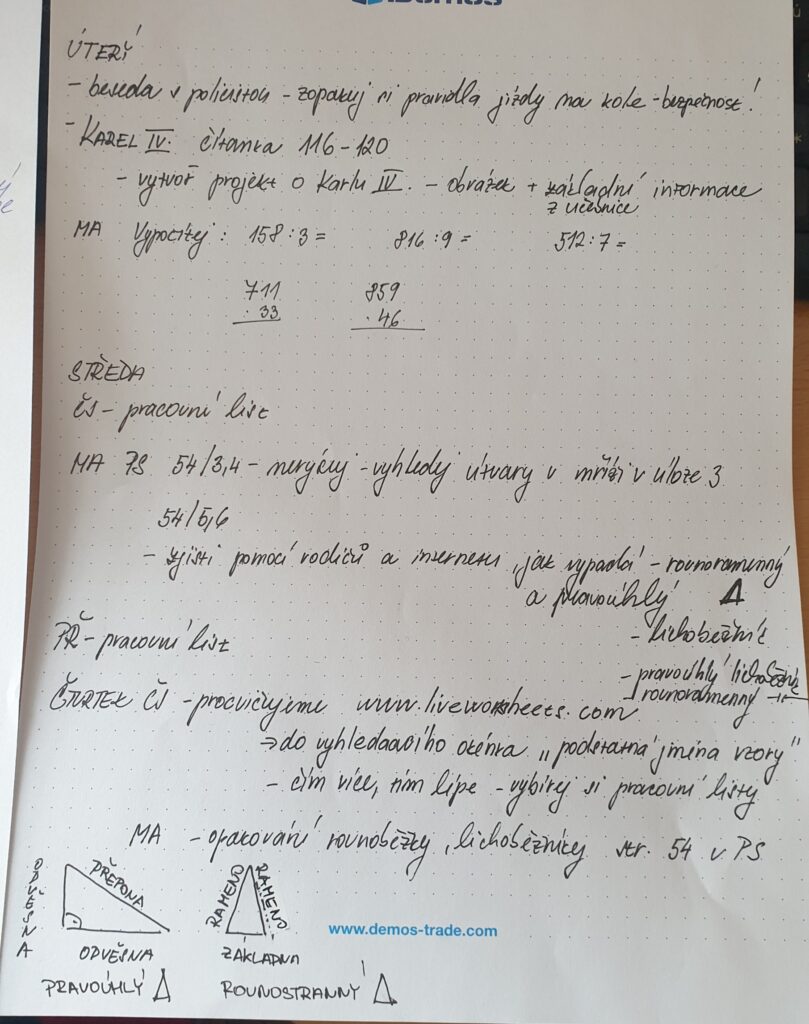 Demos
ÚTERÝ
- beseda s policistou - zopakuj si pravidla jízdy na kole - bezpečnost!
- KAREL IV. čítanka 116-120
- vytvoř projekt o Karlu IV. - obrázek + základní informace
z učebnice
MA Vypočítej : 158:3= 816:9= 512:7=
711 859
. 33 . 46
STŘEDA
ČS - pracovní list
MA PS 54/3,4 - nerýsuj - vyhledej útvary v mříži v úloze 3
54/5,6
- zjisti pomocí rodičů a internetu, jak vypadá - rovnoramenný
a pravoúhlý Δ
- lichoběžník
PŘ - pracovní list
- pravoúhlý lichoběžník
- rovnoramenný -||-
ČTVRTEK ČS - procvičujeme www.liveworksheets.com
⇒ do vyhledávacího okénka "podstatná jména vzory"
- čím více, tím lépe - vybírej si pracovní listy
MA - opakování rovnoběžky, lichoběžníky str. 54 v PS
ODVĚSNA PŘEPONA RAMENO RAMENO
www.demos-trade.com
ODVĚSNA ZÁKLADNA
PRAVOÚHLÝ Δ ROVNOSTRANNÝ Δ